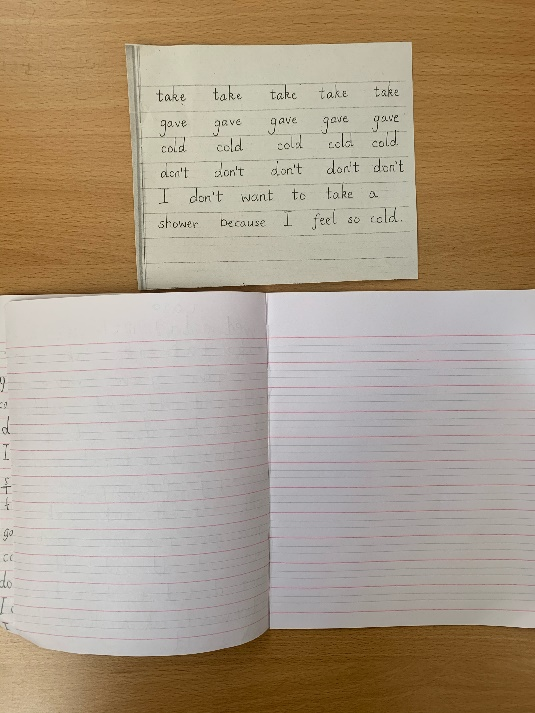 take take take take take
gave gave gave gave gave
cold cold cold cold cold
don't don't don't don't don't
I don't want to take a
shower because I feel so cold.